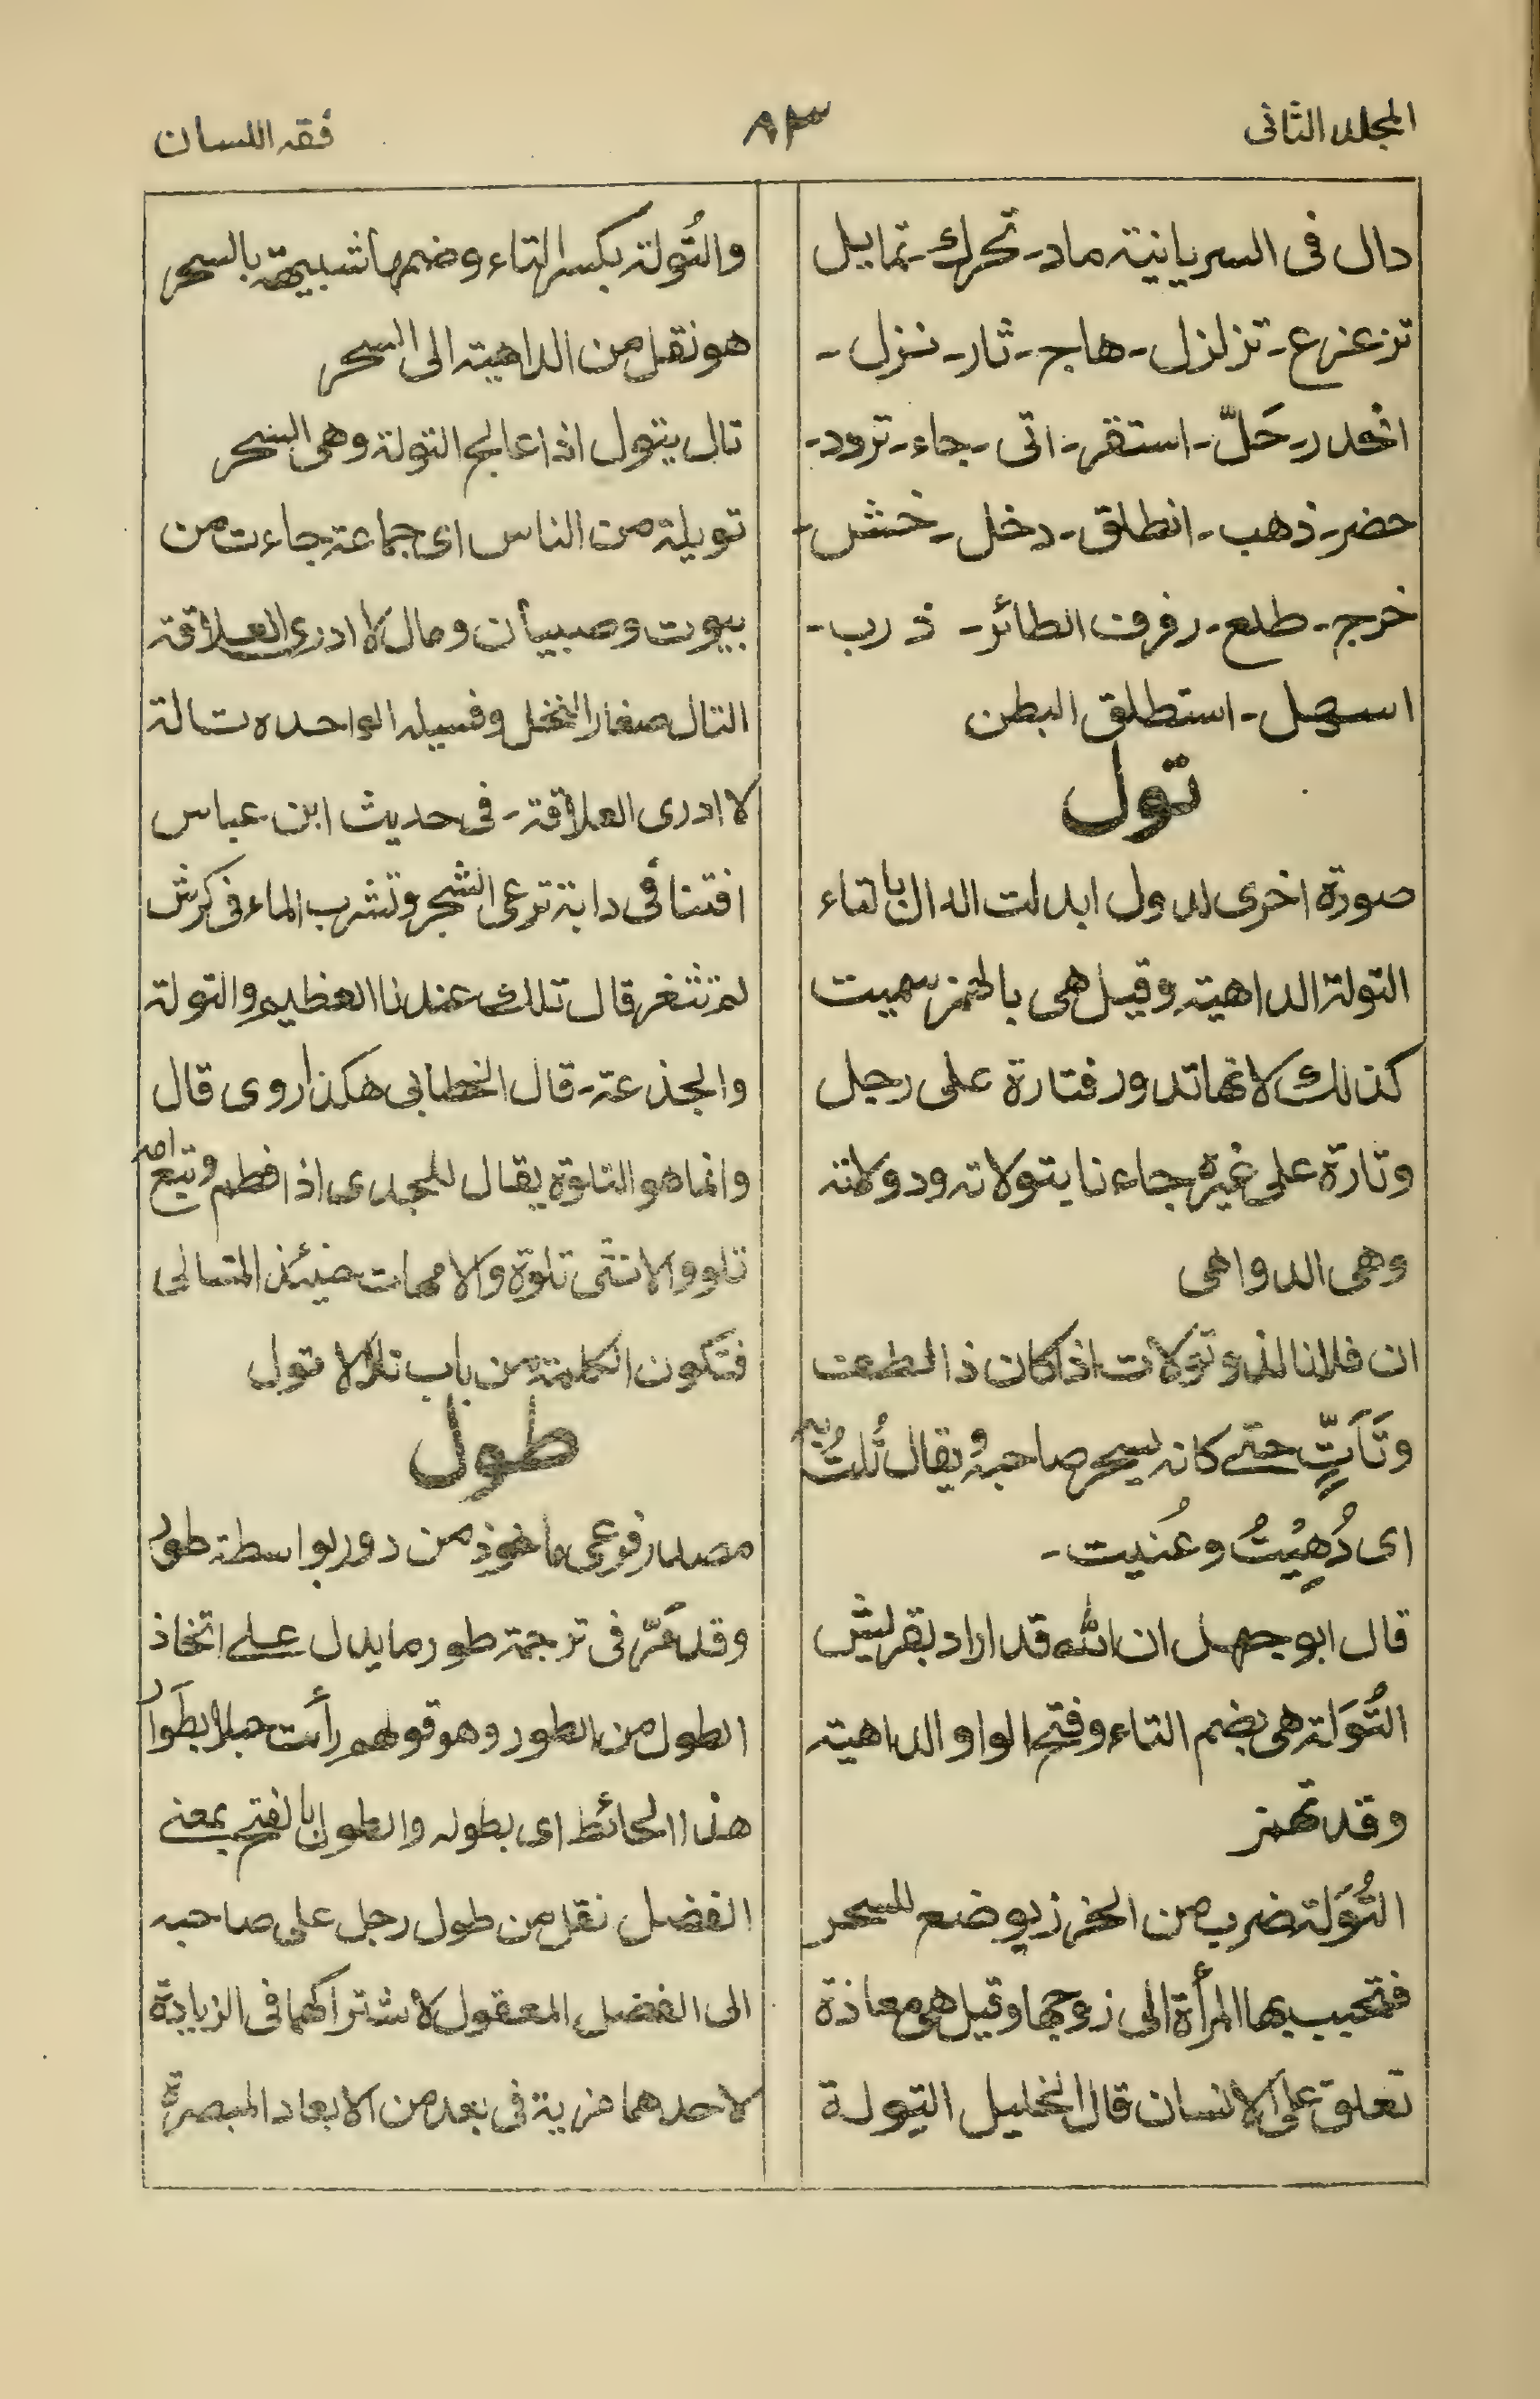 المجلد الثانى
٨٣
فقه اللسان
دال فى السريانية ماد - تحرك - تمايل
تزعزع - تزلزل - هاج - ثار - نزل -
انحدر - حَلّ - استقر - اتى - جاء - ترود -
حضر - ذهب - انطلق - دخل - خش -
خرج - طلع - رفرف الطائر - ذرب -
اسهل - استطلق البطن
تول
صورة اخرى لدول ابدلت الدال بالتاء
التولة الداهية وقيل هى بالهمز سميت
كذلك لانها تدور فتارة على رجل
وتارة على غيره جاءنا بتولاته ودولاته
وهى الدواهى
ان فلانا لذو تولات اذا كان ذا لطف
وتَأَتٍّ حتى كانه يسحر صاحبه ويقال تُلتُ به
اى دُهِيْتُ وعُنيت -
قال ابو جهل ان الله قد اراد بقريش
التُّوَلة هى بضم التاء وفتح الواو الداهية
وقد تهمز
التُّوَلة ضرب من الخرز يوضع للسحر
فتحبب بها المرأة الى زوجها وقيل هى معاذة
تعلق على الانسان قال الخليل التولة
والتُولة بكسر التاء وضمها شبيهة بالسحر
هو نقل من الداهية الى السحر
تال يتول اذا عالج التولة وهى السحر
تويلة من الناس اى جماعة جاءت من
بيوت وصبيان ومال لا ادرى العلاقة
التال صغار النخل وفسيله الواحده تالة
لا ادرى العلاقة - فى حديث ابن عباس
افتنا فى دابة ترعى الشجر وتشرب الماء فى كرش
لم تثغر قال تلك عندنا الفطيم والتولة
والجذعة - قال الخطابى هكذا روى قال
وانما هو التلوة يقال للجدى اذا فطم وتبع امه
تلو والانثى تلوة والامهات حينئذ المتالى
فتكون الكلمة من باب تلا لا تول
طول
مصدر فوعى ماخوذ من دور بواسطة طور
وقد مَرّ فى ترجمة طور ما يدل على اتخاذ
الطول من الطور وهو قولهم رأيت حبلا بطَوار
هذا الحائط اى بطوله والطول بالفتح بمعنى
الفضل نقل من طول رجل على صاحبه
الى الفضل المعقول لاشتراكهما فى الزيادة
لاحدهما مزية فى بعد من الابعاد المبصرة